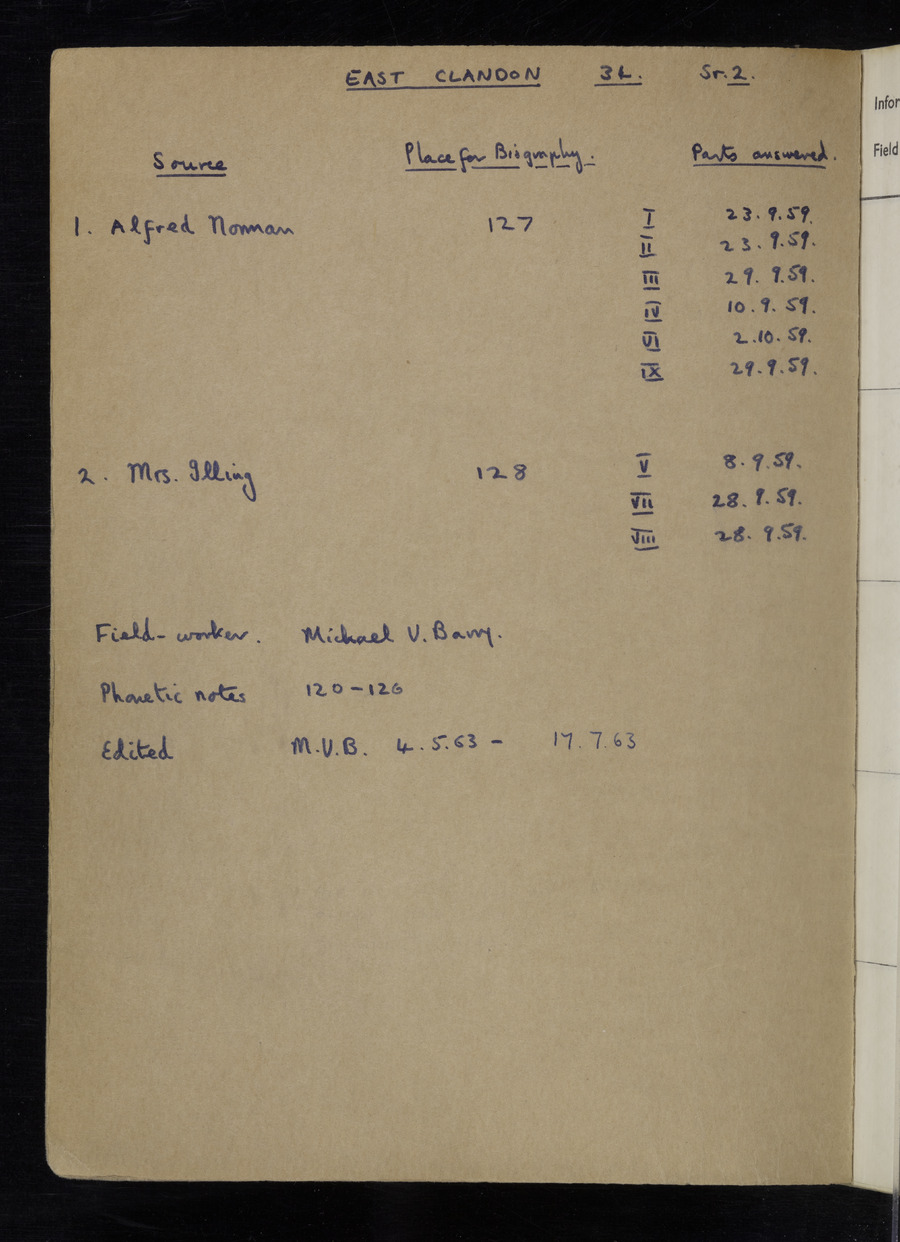 EAST CLANDON 34. Sr.2.
Source Place for Biography. Parts answered.
1. Alfred Norman 127 I 23.9.59.
II 23.9.59.
III 29.9.59.
IV 10.9.59.
VI 2.10.59.
IX 29.9.59.
2. Mrs. Illing 128 V 8.9.59.
VII 28.9.59.
VIII 28.9.59.
Field-worker. Michael V. Barry.
Phonetic notes 120-126
Edited M.V.B. 4.5.63 - 17.7.63
Infor
Field